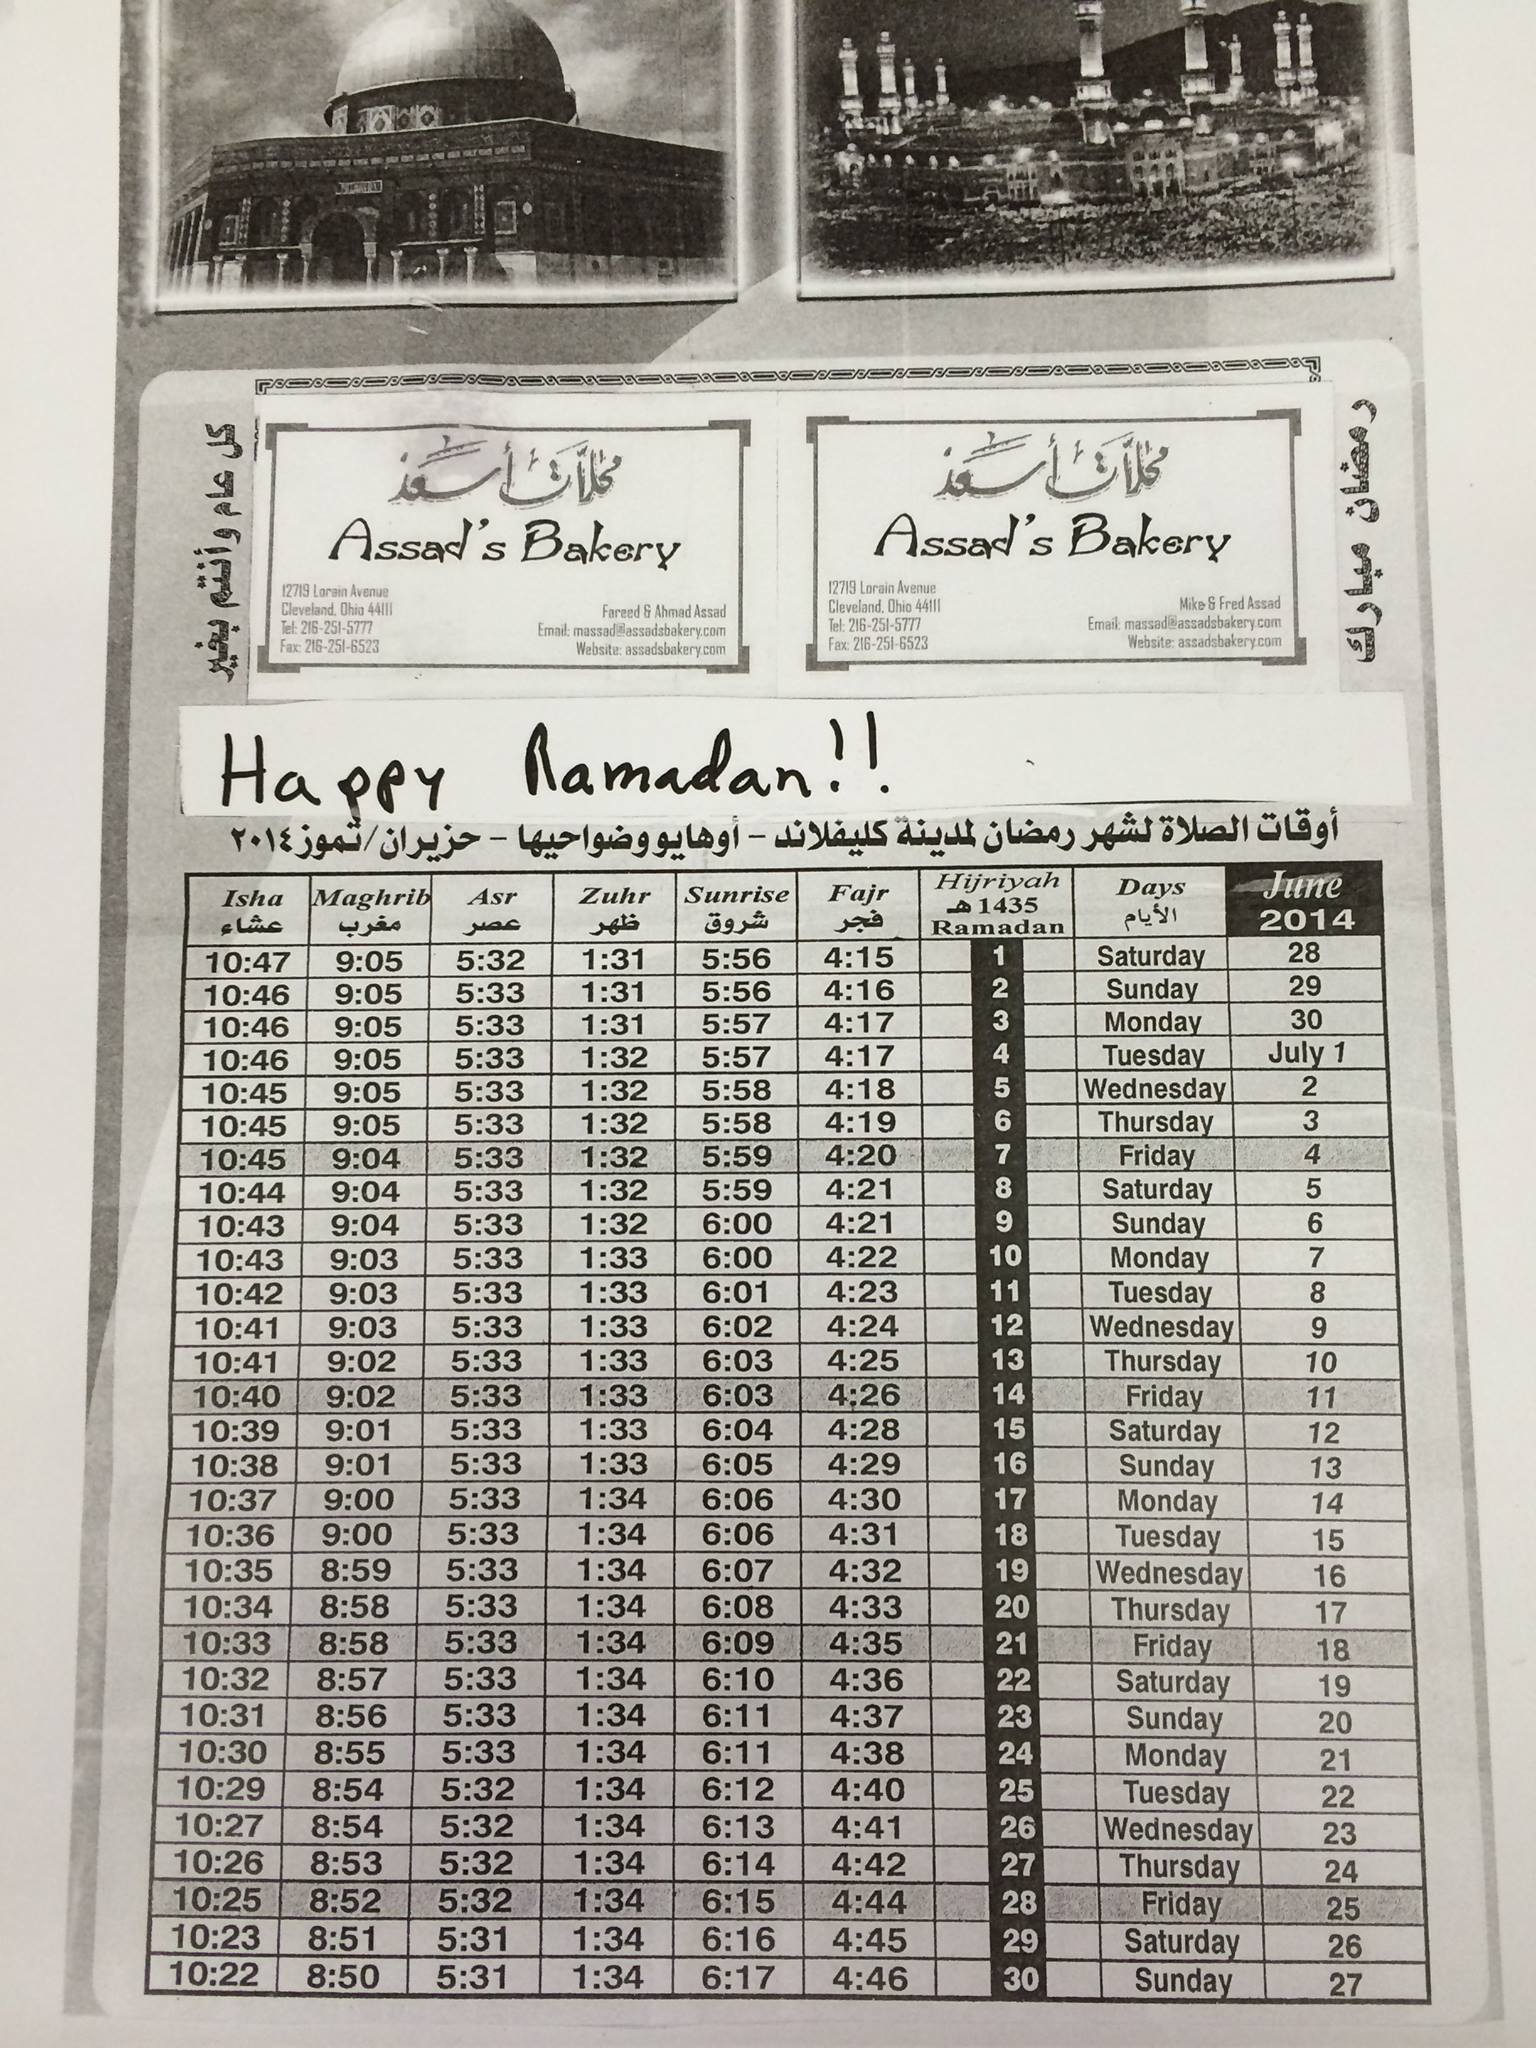 كل عام وأنتم بخير
رمضان مبارك
محلات أسعد
Assad's Bakery
12719 Lorain Avenue
Cleveland, Ohio 44111
Tel: 216-251-5777
Fax: 216-251-6523
Fareed & Ahmad Assad
Email: massad@assadsbakery.com
Website: assadsbakery.com
محلات أسعد
Assad's Bakery
12719 Lorain Avenue
Cleveland, Ohio 44111
Tel: 216-251-5777
Fax: 216-251-6523
Mike & Fred Assad
Email: massad@assadsbakery.com
Website: assadsbakery.com
Happy Ramadan!!
أوقات الصلاة لشهر رمضان لمدينة كليفلاند - أوهايو وضواحيها - حزيران/تموز ٢٠١٤
Isha Maghrib Asr Zuhr Sunrise Fajr Hijriyah Days June
عشاء مغرب عصر ظهر شروق فجر 1435 هـ الأيام 2014
Ramadan
10:47 9:05 5:32 1:31 5:56 4:15 1 Saturday 28
10:46 9:05 5:33 1:31 5:56 4:16 2 Sunday 29
10:46 9:05 5:33 1:31 5:57 4:17 3 Monday 30
10:46 9:05 5:33 1:32 5:57 4:17 4 Tuesday July 1
10:45 9:05 5:33 1:32 5:58 4:18 5 Wednesday 2
10:45 9:05 5:33 1:32 5:58 4:19 6 Thursday 3
10:45 9:04 5:33 1:32 5:59 4:20 7 Friday 4
10:44 9:04 5:33 1:32 5:59 4:21 8 Saturday 5
10:43 9:04 5:33 1:32 6:00 4:21 9 Sunday 6
10:43 9:03 5:33 1:33 6:00 4:22 10 Monday 7
10:42 9:03 5:33 1:33 6:01 4:23 11 Tuesday 8
10:41 9:03 5:33 1:33 6:02 4:24 12 Wednesday 9
10:41 9:02 5:33 1:33 6:03 4:25 13 Thursday 10
10:40 9:02 5:33 1:33 6:03 4:26 14 Friday 11
10:39 9:01 5:33 1:33 6:04 4:28 15 Saturday 12
10:38 9:01 5:33 1:33 6:05 4:29 16 Sunday 13
10:37 9:00 5:33 1:34 6:06 4:30 17 Monday 14
10:36 9:00 5:33 1:34 6:06 4:31 18 Tuesday 15
10:35 8:59 5:33 1:34 6:07 4:32 19 Wednesday 16
10:34 8:58 5:33 1:34 6:08 4:33 20 Thursday 17
10:33 8:58 5:33 1:34 6:09 4:35 21 Friday 18
10:32 8:57 5:33 1:34 6:10 4:36 22 Saturday 19
10:31 8:56 5:33 1:34 6:11 4:37 23 Sunday 20
10:30 8:55 5:33 1:34 6:11 4:38 24 Monday 21
10:29 8:54 5:32 1:34 6:12 4:40 25 Tuesday 22
10:27 8:54 5:32 1:34 6:13 4:41 26 Wednesday 23
10:26 8:53 5:32 1:34 6:14 4:42 27 Thursday 24
10:25 8:52 5:32 1:34 6:15 4:44 28 Friday 25
10:23 8:51 5:31 1:34 6:16 4:45 29 Saturday 26
10:22 8:50 5:31 1:34 6:17 4:46 30 Sunday 27